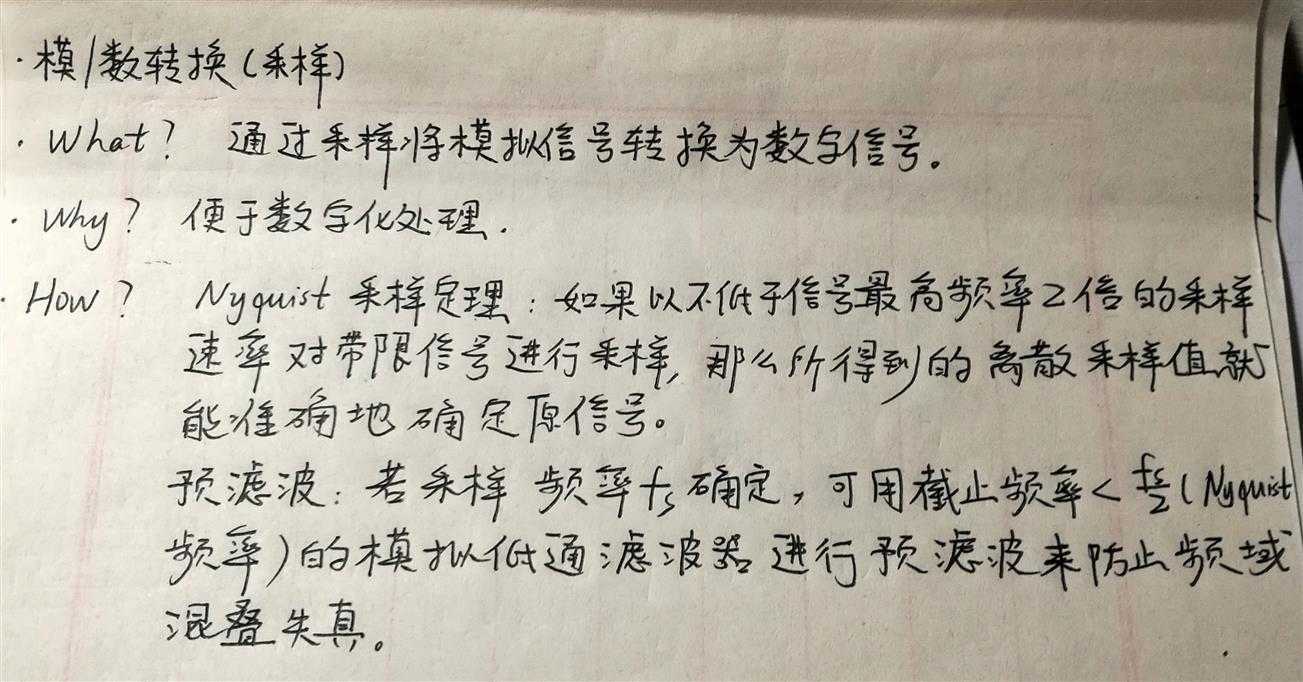 · 模/数转换(采样)
· What? 通过采样将模拟信号转换为数字信号。
· Why? 便于数字化处理.
· How? Nyquist 采样定理:如果以不低于信号最高频率2倍的采样
速率对带限信号进行采样,那么所得到的离散采样值就
能准确地确定原信号。
预滤波:若采样频率fs确定,可用截止频率<fs/2(Nyquist
频率)的模拟低通滤波器进行预滤波来防止频域
混叠失真。